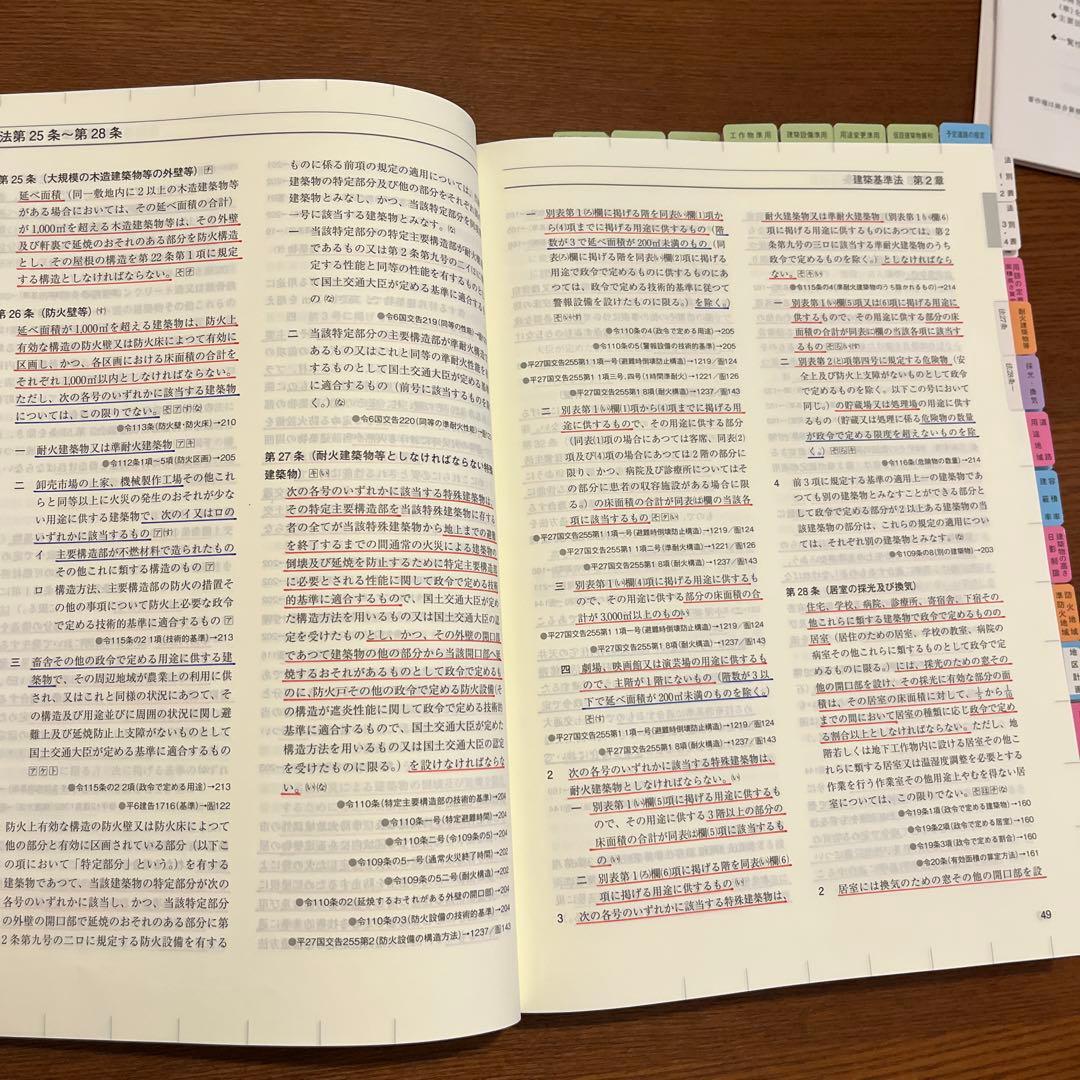 法第25条～第28条
第25条（大規模の木造建築物等の外壁等）
延べ面積（同一敷地内に2以上の木造建築物等
がある場合においては、その延べ面積の合計）
が1,000㎡を超える木造建築物等は、その外壁
及び軒裏で延焼のおそれのある部分を防火構造
とし、その屋根の構造を第22条第1項に規定
する構造としなければならない。
第26条（防火壁等）
延べ面積が1,000㎡を超える建築物は、防火上
有効な構造の防火壁又は防火床によつて有効に
区画し、かつ、各区画における床面積の合計を
それぞれ1,000㎡以内としなければならない。
ただし、次の各号のいずれかに該当する建築物
については、この限りでない。
●令113条（防火壁・防火床）→210
一 耐火建築物又は準耐火建築物
●令112条1項～5項（防火区画）→205
二 卸売市場の上家、機械製作工場その他これ
らと同等以上に火災の発生のおそれが少な
い用途に供する建築物で、次のイ又はロの
いずれかに該当するもの
イ 主要構造部が不燃材料で造られたもの
その他これに類する構造のもの
ロ 構造方法、主要構造部の防火の措置そ
の他の事項について防火上必要な政令
で定める技術的基準に適合するもの
●令115条の2 1項（技術的基準）→213
三 畜舎その他の政令で定める用途に供する建
築物で、その周辺地域が農業上の利用に供
され、又はこれと同様の状況にあつて、そ
の構造及び用途並びに周囲の状況に関し避
難上及び延焼防止上支障がないものとして
国土交通大臣が定める基準に適合するもの
●令115条の2 2項（政令で定める用途）→213
●平6建告1716（基準）→図122
防火上有効な構造の防火壁又は防火床によつて
他の部分と有効に区画されている部分（以下こ
の項において「特定部分」という。）を有する
建築物であつて、当該建築物の特定部分が次の
各号のいずれかに該当し、かつ、当該特定部分
の外壁の開口部で延焼のおそれのある部分に第
2条第九号の二ロに規定する防火設備を有する
ものに係る前項の規定の適用については、
建築物の特定部分及び他の部分をそれぞれ
建築物とみなし、かつ、当該特定部分を同
一号に該当する建築物とみなす。
一 当該建築物の特定部分の特定主要構造部が
であるもの又は第2条第九号の二イ
定する性能と同等の性能を有するもの
て国土交通大臣が定める基準に適合する
の
●令6国交告219（同等の性能）
二 当該特定部分の主要構造部が準耐火構造で
あるもの又はこれと同等の準耐火性能を有
するものとして国土交通大臣が定める基準
に適合するもの（前号に該当するものを除
く。）
●令6国交告220（同等の準耐火性能）
第27条（耐火建築物等としなければならない特殊
建築物）
次の各号のいずれかに該当する特殊建築物は、
その特定主要構造部を当該特殊建築物に存する
者の全てが当該特殊建築物から地上までの避難
を終了するまでの間通常の火災による建築物の
倒壊及び延焼を防止するために特定主要構造部
に必要とされる性能に関して政令で定める技術
的基準に適合するもので、国土交通大臣が定め
た構造方法を用いるもの又は国土交通大臣の認
定を受けたものとし、かつ、その外壁の開口部
であつて建築物の他の部分から当該開口部へ延
焼するおそれがあるものとして政令で定めるも
のに、防火戸その他の政令で定める防火設備（そ
の構造が遮炎性能に関して政令で定める技術的
基準に適合するもので、国土交通大臣が定めた
構造方法を用いるもの又は国土交通大臣の認定
を受けたものに限る。）を設けなければならな
い。
●令110条（特定主要構造部の技術的基準）→204
●令110条一号（特定避難時間）→204
●令110条二号（令109条の5）→204
●令109条の5一号（通常火災終了時間）→202
●令109条の5二号（耐火構造）→202
●令110条の2（延焼するおそれがある外壁の開口部）→204
●令110条の3（防火設備の技術的基準）→204
●平27国交告255第2（防火設備の構造方法）→1237／図143
工作物準用
建築設備準用
用途変更準用
仮設建築物緩和
予定道路の指定
建築基準法 第2章
一 別表第1(ろ)欄に掲げる階を同表(い)欄(1)項か
ら(4)項までに掲げる用途に供するもの（階
数が3で延べ面積が200㎡未満のもの（同
表(ろ)欄に掲げる階を同表(い)欄(2)項に掲げる
用途で政令で定めるものに供するものにあ
つては、政令で定める技術的基準に従つて
警報設備を設けたものに限る。）を除く。）
●令110条の4（政令で定める用途）→205
●令110条の5（警報設備の技術的基準）→205
●平27国交告255第1 1項一号（避難時倒壊防止構造）→1219／図124
●平27国交告255第1 1項三号、四号（1時間準耐火）→1221／図126
●平27国交告255第1 8項（耐火構造）→1237／図143
二 別表第1(い)欄(1)項から(4)項までに掲げる用
途に供するもので、その用途に供する部分
（同表(1)項の場合にあつては客席、同表(2)
項及び(4)項の場合にあつては2階の部分に
限り、かつ、病院及び診療所についてはそ
の部分に患者の収容施設がある場合に限
る。）の床面積の合計が同表(は)欄の当該各
項に該当するもの
●平27国交告255第1 1項一号（避難時倒壊防止構造）→1219／図124
●平27国交告255第1 1項二号（準耐火構造）→1221／図126
●平27国交告255第1 8項（耐火構造）→1237／図143
三 別表第1(い)欄(4)項に掲げる用途に供するも
ので、その用途に供する部分の床面積の合
計が3,000㎡以上のもの
●平27国交告255第1 1項一号（避難時倒壊防止構造）→1219／図124
●平27国交告255第1 8項（耐火構造）→1237／図143
四 劇場、映画館又は演芸場の用途に供するも
ので、主階が1階にないもの（階数が3以
下で延べ面積が200㎡未満のものを除く。）
●平27国交告255第1 1項一号（避難時倒壊防止構造）→1219／図124
●平27国交告255第1 8項（耐火構造）→1237／図143
2 次の各号のいずれかに該当する特殊建築物は、
耐火建築物としなければならない。
一 別表第1(い)欄(5)項に掲げる用途に供するも
ので、その用途に供する3階以上の部分の
床面積の合計が同表(は)欄(5)項に該当するも
の
二 別表第1(ろ)欄(6)項に掲げる階を同表(い)欄(6)
項に掲げる用途に供するもの
3 次の各号のいずれかに該当する特殊建築物は、
耐火建築物又は準耐火建築物（別表第1(い)欄(6)
項に掲げる用途に供するものにあつては、第2
条第九号の三ロに該当する準耐火建築物のうち
政令で定めるものを除く。）としなければなら
ない。
●令115条の4（準耐火建築物のうち除かれるもの）→214
一 別表第1(い)欄(5)項又は(6)項に掲げる用途に
供するもので、その用途に供する部分の床
面積の合計が同表(に)欄の当該各項に該当す
るもの
二 別表第2(と)項第四号に規定する危険物（安
全上及び防火上支障がないものとして政令
で定めるものを除く。以下この号において
同じ。）の貯蔵場又は処理場の用途に供す
るもの（貯蔵又は処理に係る危険物の数量
が政令で定める限度を超えないものを除
く。）
●令116条（危険物の数量）→214
4 前3項に規定する基準の適用上一の建築物であ
つても別の建築物とみなすことができる部分と
して政令で定める部分が2以上ある建築物の当
該建築物の部分は、これらの規定の適用につい
ては、それぞれ別の建築物とみなす。
●令109条の8（別の建築物）→203
第28条（居室の採光及び換気）
住宅、学校、病院、診療所、寄宿舎、下宿その
他これらに類する建築物で政令で定めるものの
居室（居住のための居室、学校の教室、病院の
病室その他これらに類するものとして政令で定
めるものに限る。）には、採光のための窓その
他の開口部を設け、その採光に有効な部分の面
積は、その居室の床面積に対して、1/5から1/10
までの間において居室の種類に応じ政令で定め
る割合以上としなければならない。ただし、地
階若しくは地下工作物内に設ける居室その他こ
れらに類する居室又は温湿度調整を必要とする
作業を行う作業室その他用途上やむを得ない居
室については、この限りでない。
●令19条1項（政令で定める建築物）→160
●令19条2項（政令で定める居室）→160
●令19条3項（政令で定める割合）→160
●令20条（有効面積の算定方法）→161
2 居室には換気のための窓その他の開口部を設
49
法別表1・2
法別表3・4
耐火建築物等
法27条
採光・換気
道路
用途地域
容積率
建蔽率
建築物の高さ
日影制限
防火地域
準防火地域